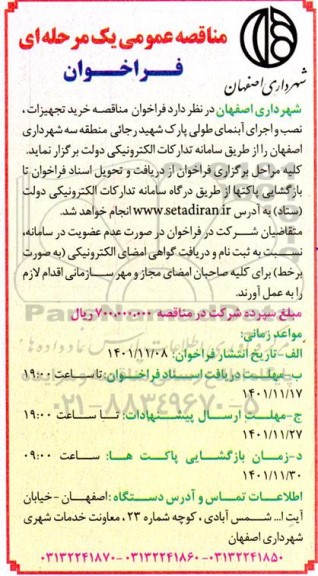 مناقصه عمومی یک مرحله ای
فراخوان
شهرداری اصفهان
شهرداری اصفهان در نظر دارد فراخوان مناقصه خرید تجهیزات ،
نصب و اجرای آبنمای طولی پارک شهید رجائی منطقه سه شهرداری
اصفهان را از طریق سامانه تدارکات الکترونیکی دولت برگزار نماید.
کلیه مراحل برگزاری فراخوان از دریافت و تحویل اسناد فراخوان تا
بازگشایی پاکتها از طریق درگاه سامانه تدارکات الکترونیکی دولت
(ستاد) به آدرس www.setadiran.ir انجام خواهد شد.
متقاضیان شرکت در فراخوان در صورت عدم عضویت در سامانه،
نسبت به ثبت نام و دریافت گواهی امضای الکترونیکی (به صورت
برخط) برای کلیه صاحبان امضای مجاز و مهر سازمانی اقدام لازم
را به عمل آورند.
مبلغ سپرده شرکت در مناقصه ۷۰۰,۰۰۰,۰۰۰ ریال
مواعد زمانی:
الف- تاریخ انتشار فراخوان: ۱۴۰۱/۱۱/۰۸
ب- مهلت دریافت اسناد فراخوان: تا ساعت ۱۹:۰۰
۱۴۰۱/۱۱/۱۷
ج- مهلت ارسال پیشنهادات: تا ساعت ۱۹:۰۰
۱۴۰۱/۱۱/۲۷
د- زمان بازگشایی پاکت ها: ساعت ۰۹:۰۰
۱۴۰۱/۱۱/۳۰
اطلاعات تماس و آدرس دستگاه : اصفهان - خیابان
آیت ا... شمس آبادی ، کوچه شماره ۲۳ ، معاونت خدمات شهری
شهرداری اصفهان
۰۳۱۳۲۲۴۱۸۷۰-۰۳۱۳۲۲۴۱۸۶۰-۰۳۱۳۲۲۴۱۸۵۰
۰۲۱-۸۸۳۴۹۶۷۰-۵